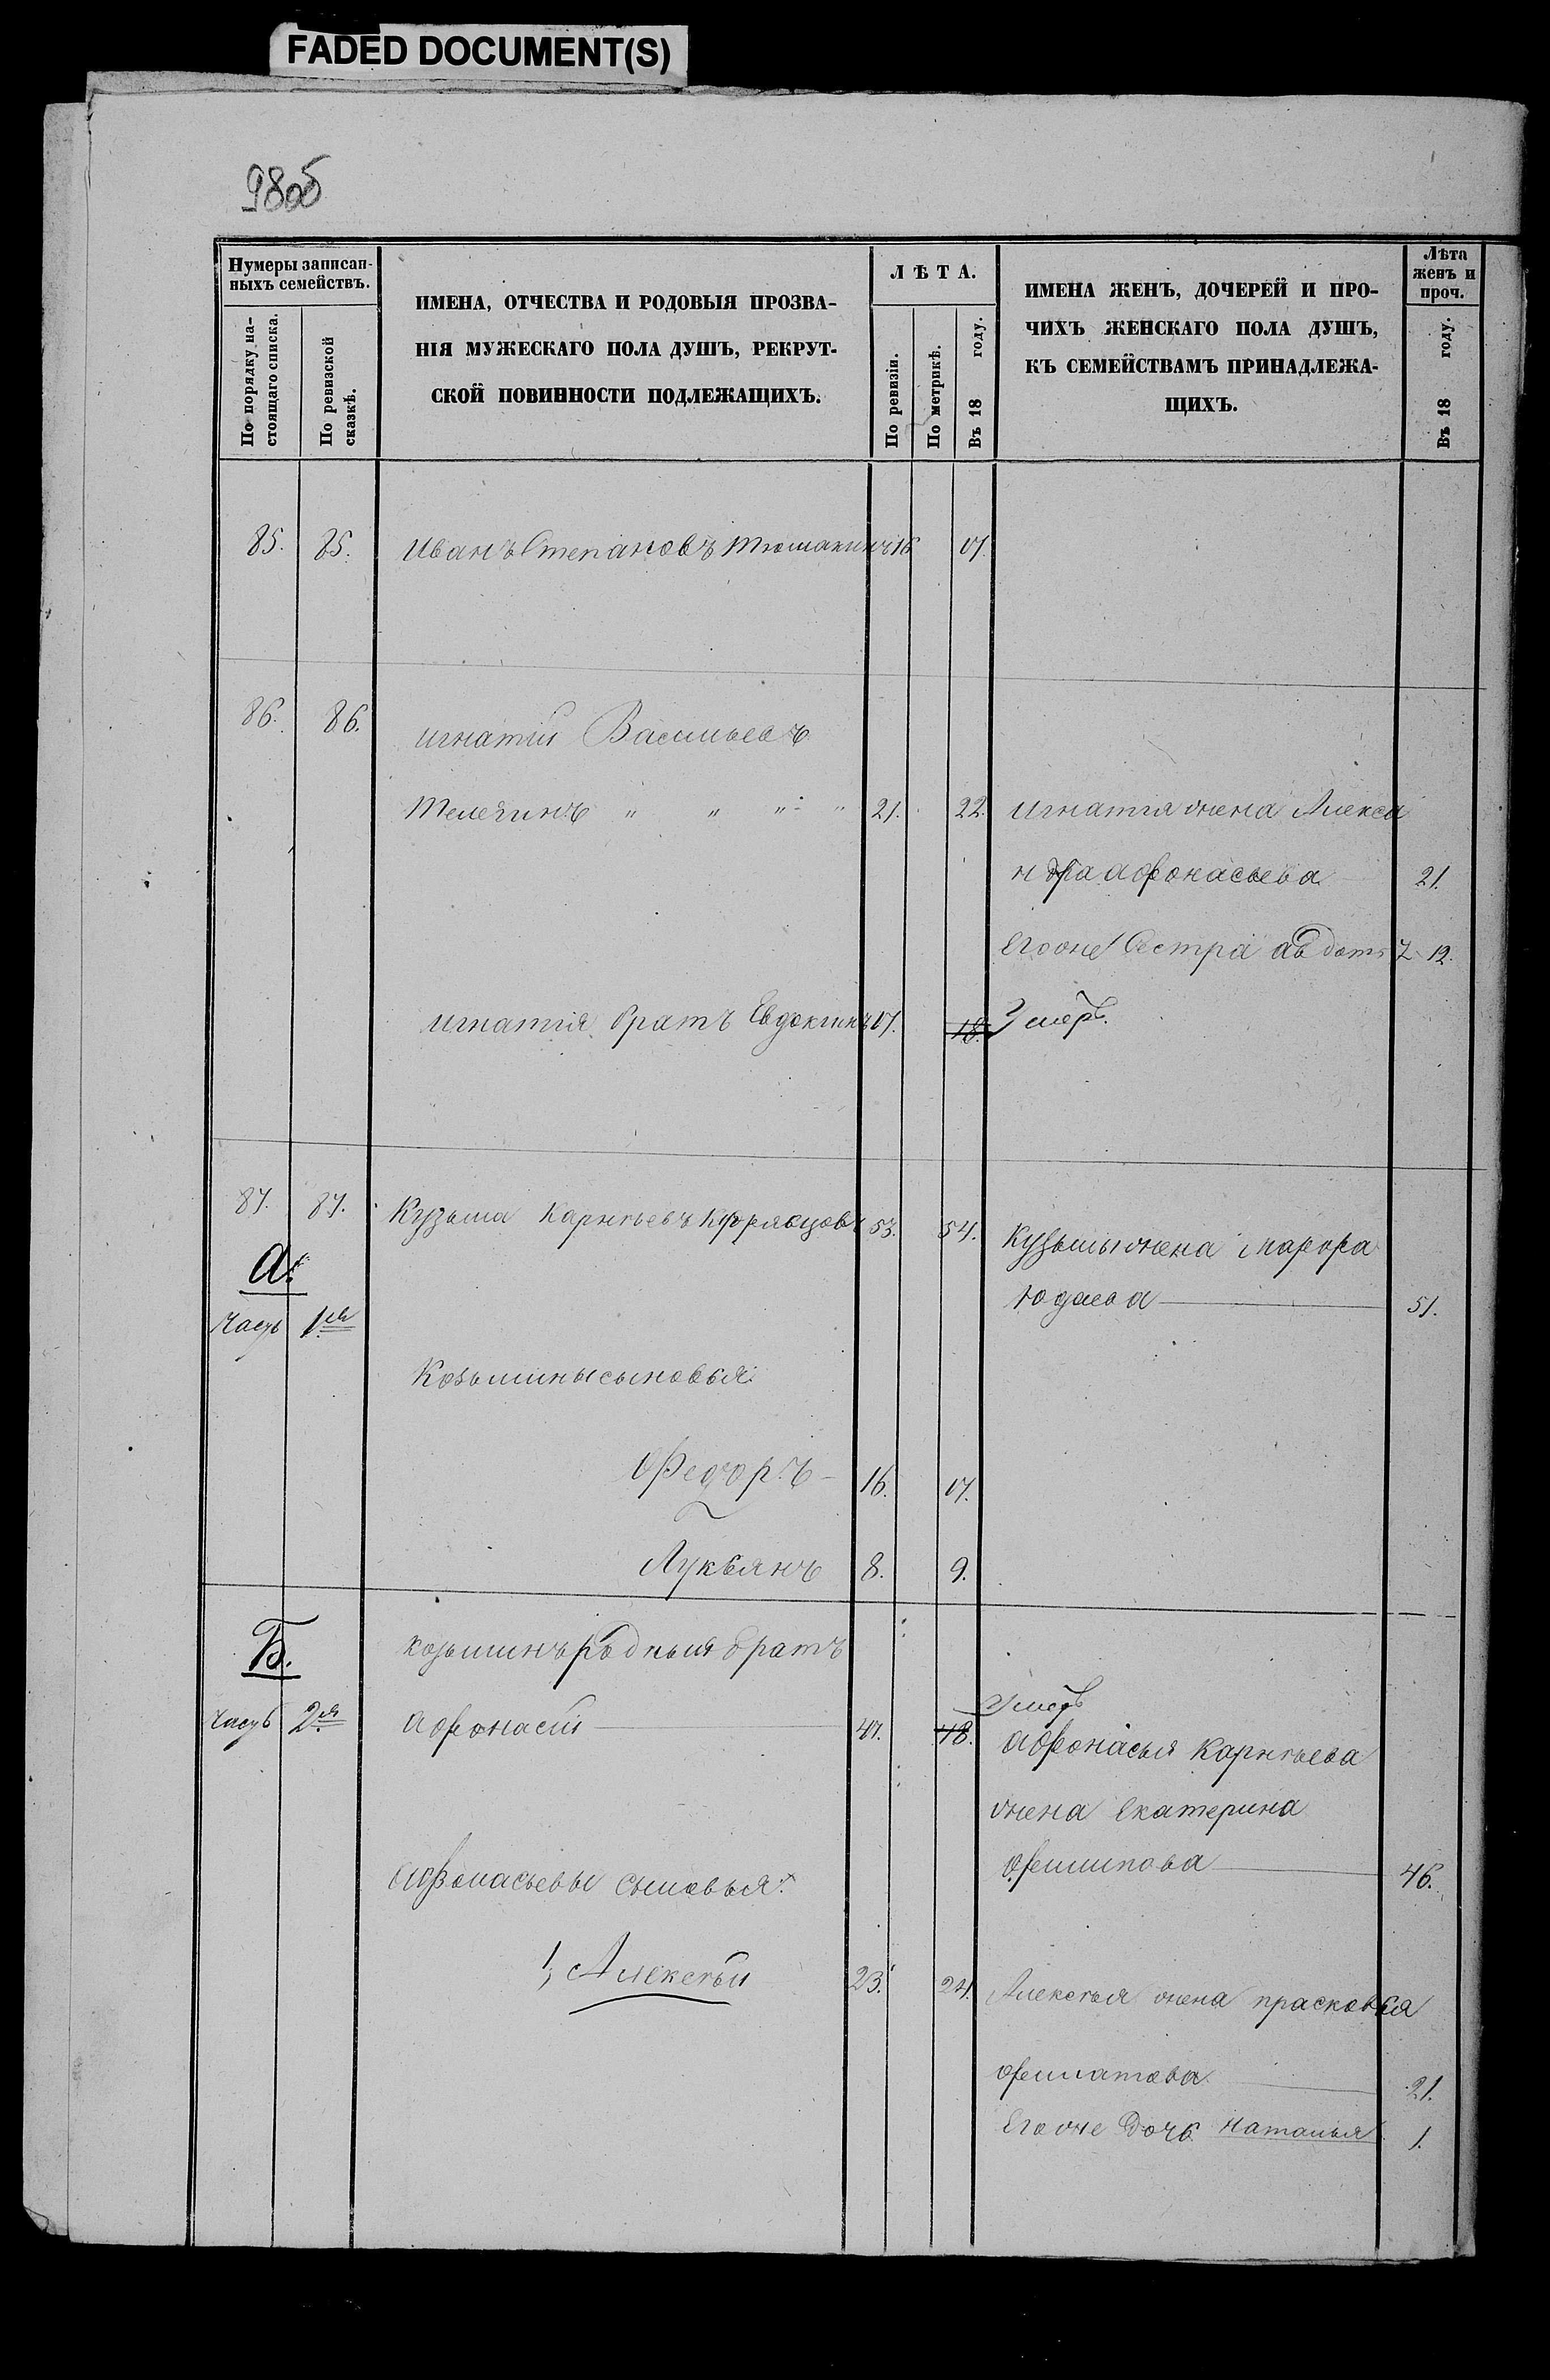 FADED DOCUMENT(S)
98об
Нумеры записан-
ныхъ семействъ.
По порядку на-
стоящаго списка.
По ревизской
сказкѣ.
ИМЕНА, ОТЧЕСТВА И РОДОВЫЯ ПРОЗВА-
НІЯ МУЖЕСКАГО ПОЛА ДУШЪ, РЕКРУТ-
СКОЙ ПОВИННОСТИ ПОДЛЕЖАЩИХЪ.
ЛѢТА.
По ревизіи.
По метрикѣ.
Въ 18 году.
ИМЕНА ЖЕНЪ, ДОЧЕРЕЙ И ПРО-
ЧИХЪ ЖЕНСКАГО ПОЛА ДУШЪ,
КЪ СЕМЕЙСТВАМЪ ПРИНАДЛЕЖА-
ЩИХЪ.
Лѣта
женъ и
проч.
Въ 18 году.
85. 85. Иванъ Степановъ 16 17.
86. 86. Игнатій Васильевъ
Телегинъ " " " " 21. 22. Игнатія жена Алекса
ндра Афонасьева 21.
Его же Сестра Авдоть 7 12.
Игнатія братъ Евдокимъ 17. 18. Умеръ.
87. 87. Кузьма Карпѣевъ 53. 54. Кузьмы жена
А.
51.
Часть 1я
Козьмины сыновья
Федоръ 16. 17.
Лукьянъ 8. 9.
Б. Козьминъ родныя братъ
Умеръ
Часть 2я Афонасій 47. 48. Афонасья Карпѣева
жена Екатерина
Филипова 46.
Афонасьевы сыновья:
1, Алексѣй 23. 24. Алексѣя жена прасковья
21.
Его же Дочь Наталья 1.